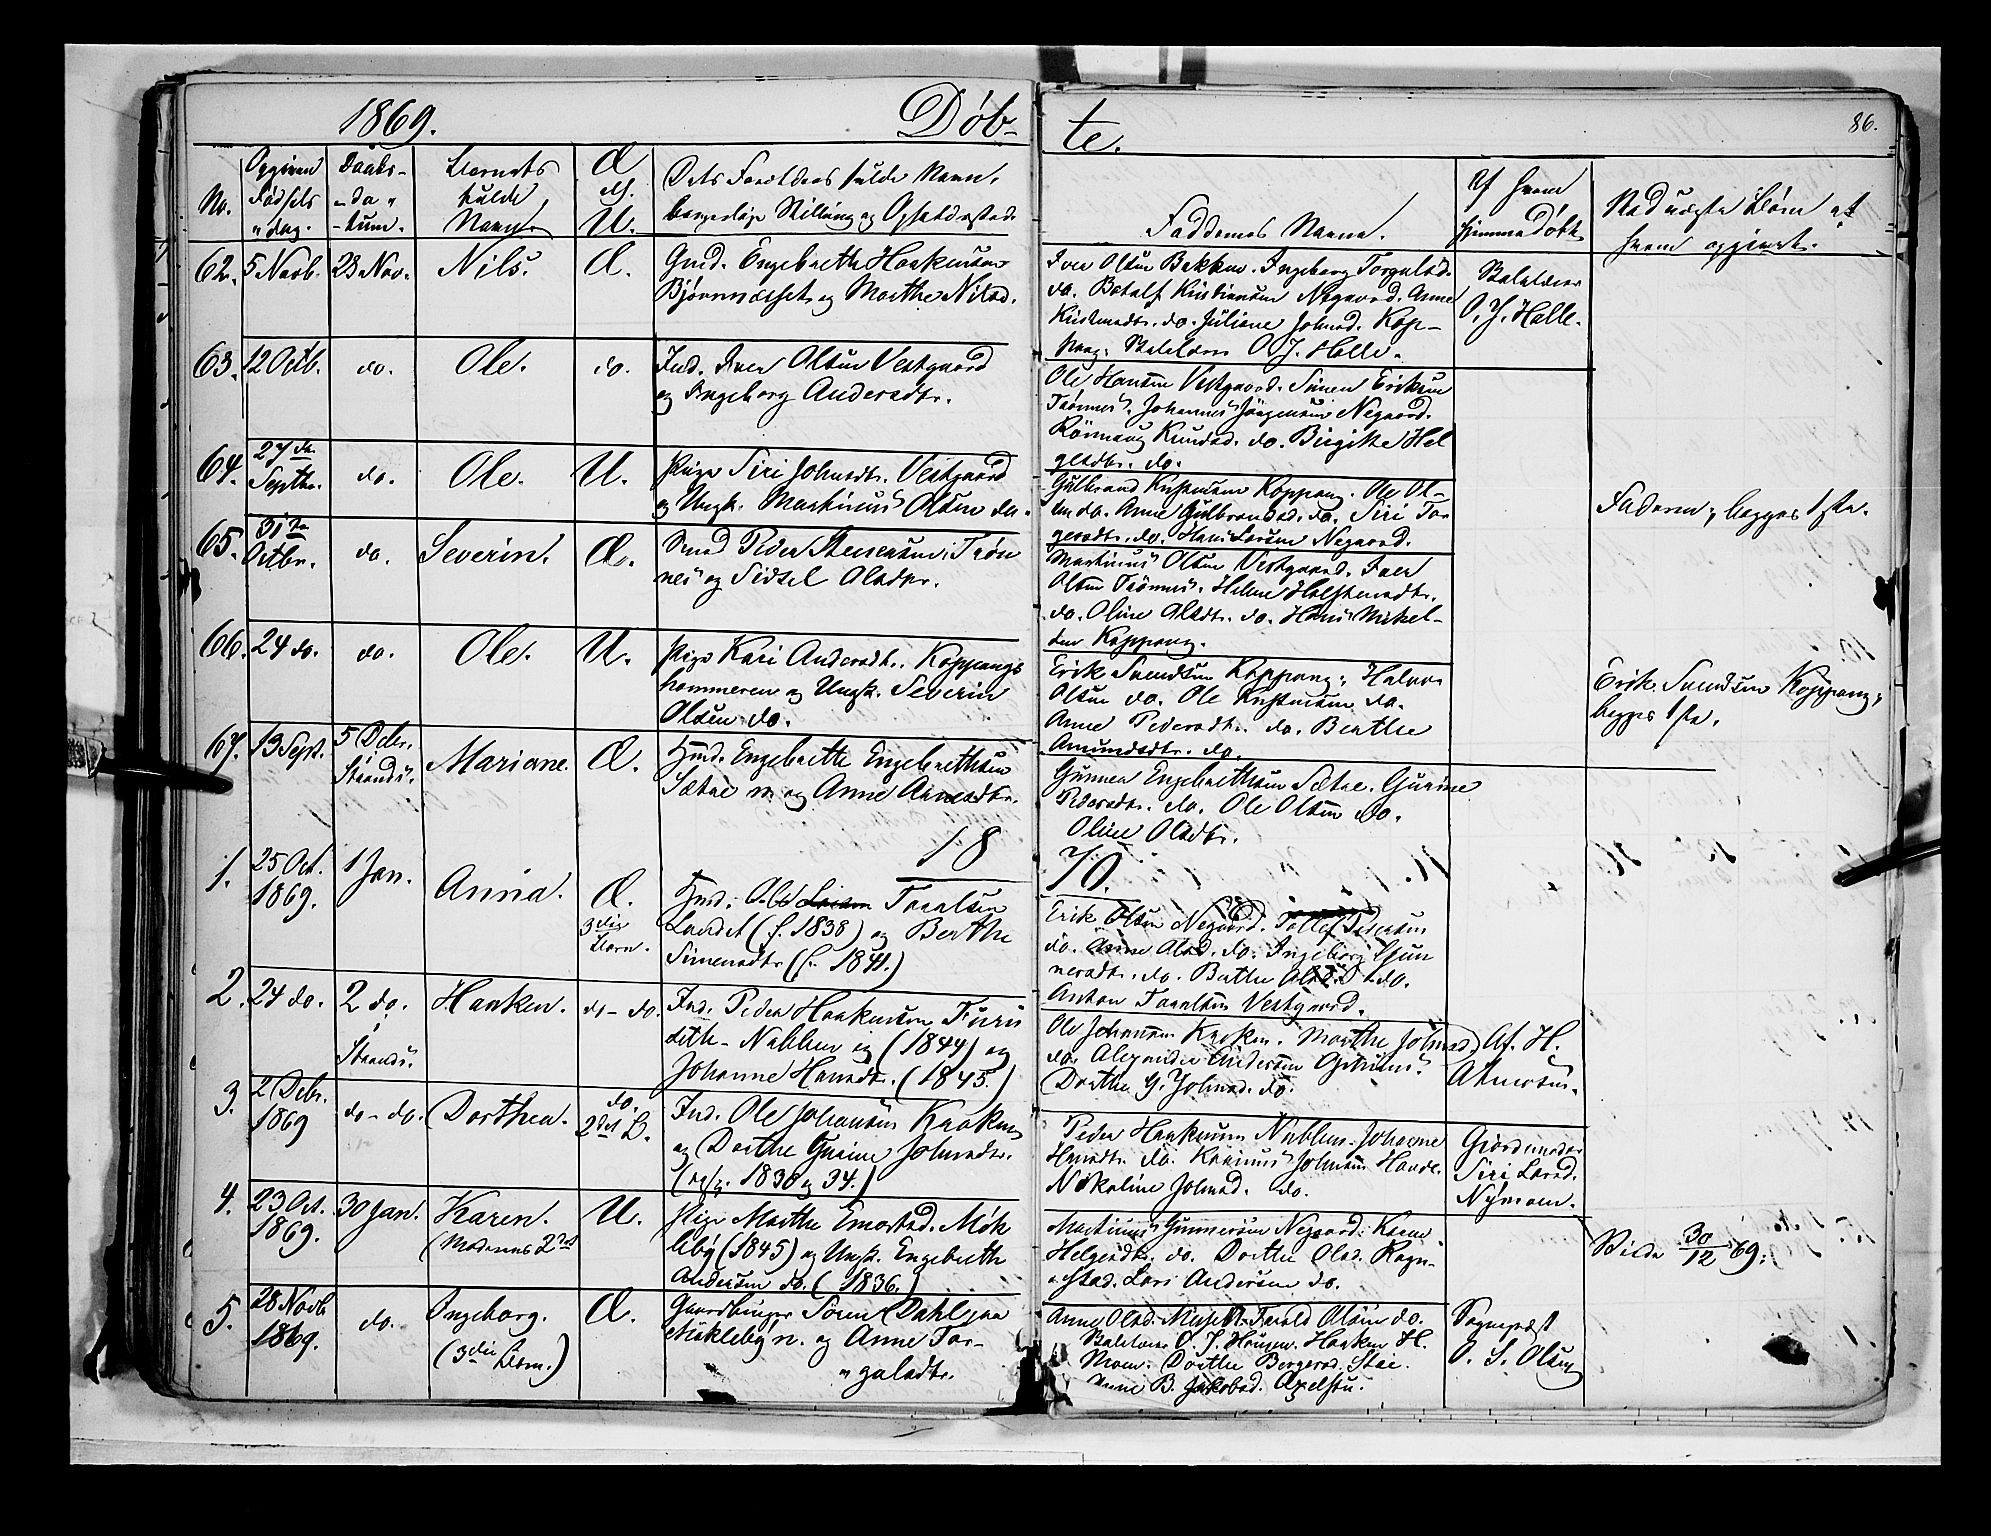 1869.
Døb-
te.
86.
No.
Opgiven
Fødsels
"dag.
Daabs-
"da"
-tum.
Barnets
fulde
Navn.
Æ
ell.
U.
Dets Forældres fulde Navn,
borgerlige Stilling og Opholdssted.
Faddernes Navne.
Af hvem
hjemmedøbt.
Ved uægte Børn af
hvem opgivet.
62.
5 Novb.
28 Nov.
Nils.
Æ.
Gmd. Engebreth Haakensen
Bjørnnæsset og Marthe Nilsd.
Iver Olsen Bakken. Ingeborg Torgalsd.
do. Botolf Kristiansen Negaard. Anne
Kristensdtr. do. Juliane Johnsd. Kop-
pang. O. J. Halle.
O. J. Halle.
63.
12 Octb.
do.
Ole.
do.
Ind. Iver Olsen Vestgaard
og Ingeborg Andersdtr.
Ole Hansen Vestgaard. Simen Eriksen
Trønnes. Johannes Jørgensen Negaard.
Rønnaug Knudsd. do. Birgitte Hel
gesdtr. do.
64.
27 de
Septbr.
do.
Ole.
U.
Pige Siri Johnsdtr. Vestgaard
og Ungk. Martinus Olsen do.
Gulbrand Kristensen Koppang. Ole Ol-
sen do. Anne Gulbrandsd. do. Siri Tor
gersdtr. do. Hans Larsen Negaard.
Faderen; begges 1ste.
65.
31 te
Octbr.
do.
Severin.
Æ.
Smed Peder Steensen Trøn
nes og Sidsel Olsdtr.
Martinus Olsen Vestgaard. Iver
Olsen Trønnes. Helene Halstensdtr.
do. Oline Olsdtr. do. Hans Mikel-
sen Koppang.
66.
24 do.
do.
Ole.
U.
Pige Kari Andersdtr. Koppangs
hammeren og Ungk. Severin
Olsen do.
Erik Svendsen Koppang. Halvor
Olsen do. Ole Kristensen do.
Anne Pedersdtr. do. Berthe
Amundsdtr. do.
Erik Svendsen Koppang;
begges 1ste.
67.
13 Sept.
5 Debr.
Strands.
Mariane.
Æ.
Hmd. Engebrette Engebrethsen
Sætre og Anne Arnesdtr.
Gunner Engebrethsen Sætre. Gurine
Pedersdtr. do. Ole Olsen do.
Oline Olsdtr.
18
70.
1.
25 Oct.
1869.
1 Jan.
Anna.
Æ.
3die
Barn.
Hmd. Ole Taraldsen
Landet (f. 1838) og Berthe
Simensdtr. (f. 1841.)
Erik Olsen Negaard. Tollef Pedersen
do. Anne Olsd. do. Ingeborg Gun
nersdtr. do. Berthe Olsd. do.
Anton Taraldsen Vestgaard.
2.
24 do.
2 do.
i
Strands.
Haaken.
do - do.
Ind. Peder Haakensen Furu
seth-Nabben og (1844) og
Johanne Hansdtr. (1845.)
Ole Johansen Kroken. Marthe Johnsd.
do. Alexander Andersen
Dorthe G. Johnsd. do.
Af H.
3.
2 Debr.
1869
do - do.
Dorthea.
do.
2det B.
Ind. Ole Johansen Kroken
og Dorthe Gurine Johnsdtr.
(resp. 1830 og 34.)
Peder Haakensen Nabben. Johanne
Hansdtr. do. Karinus Johnsen
Nikoline Johnsd. do.
Giordemoder
Siri Larsd.
Nymoen.
4.
23 Oct.
1869.
30 Jan.
Karen.
(Moderens 2det
U.
Pige Marthe Møk
leby (1845) og Ungk. Engebreth
Andersen do. (1836.)
Martinus Gunnersen Negaard. Karen
Helgesdtr. do. Dorthe Olsd. Rogn-
stad. Lars Andersen do.
Vide 30/12 69.
5.
28 Novb
1869.
do.
Ingeborg.
(3die Barn.)
Æ.
Gaardbruger Søren Dahl paa
Møkleby n. og Anne Tor-
"galsdtr.
Anne Olsd. Tarald Olsen do.
O. J. Haugen. Haaken H.
Moen. Dorthe Bergersd. Stai.
Anne B. Jakobsd.
Sognepræst
O. S. Olsen